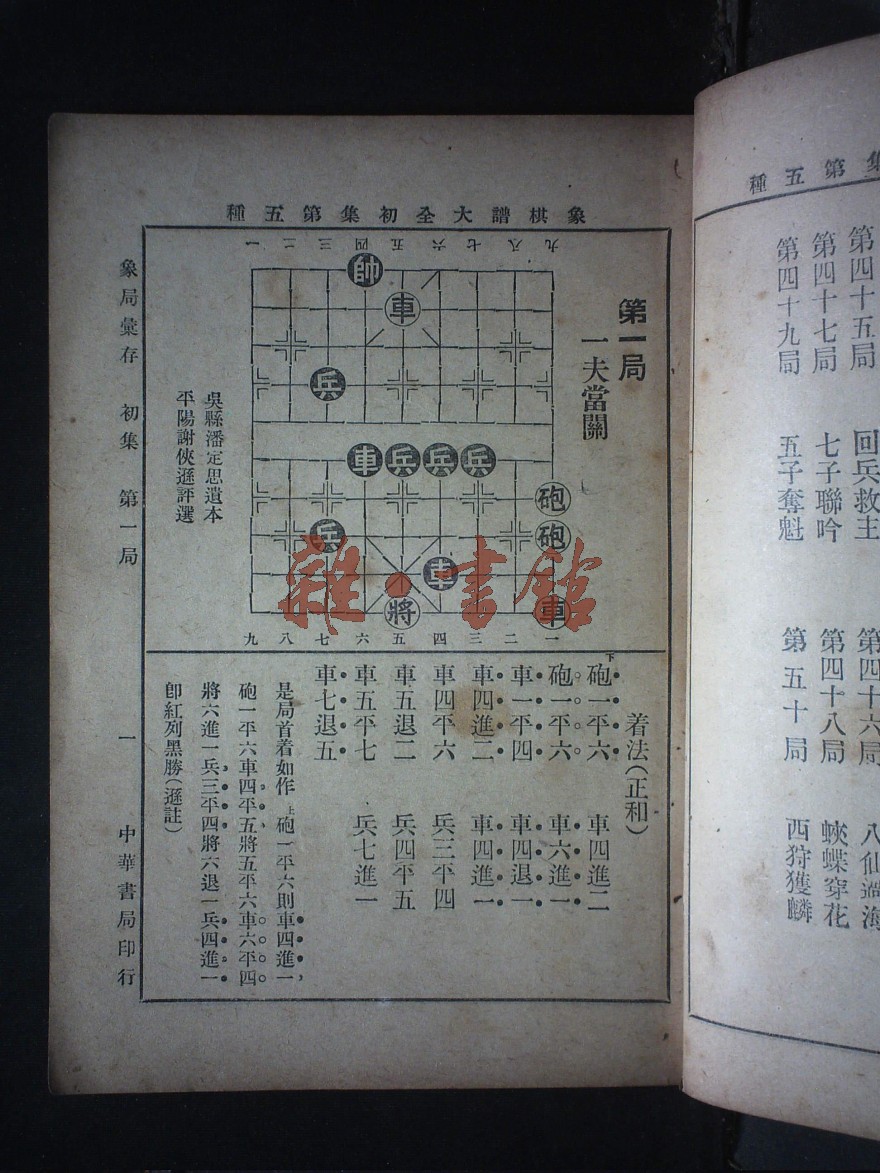 象棋譜大全初集第五種
第一局
一夫當關
一二三四五六七八九
帥
車
兵
車兵兵兵
砲
兵砲
車
將車
九八七六五四三二一
吳縣潘定思遺本
平陽謝俠遜評選
象局彙存 初集 第一局 一 中華書局印行
着法(正和)
下砲一平六 車四進二
砲一平六 車六進一
車一平四 車四退一
車四進二 車四進一
車四平六 兵三平四
車五退二 兵四平五
車五平七 兵七進一
車七退五
是局首着如作上砲一平六則車四進一
砲一平六車四平五將五平六車六平四
將六進一兵三平四將六退一兵四進一
卽紅列黑勝(遜註)
集第五種
第四十五局 回兵救主
第四十六局 八仙過海
第四十七局 七子聯吟
第四十八局 蛺蝶穿花
第四十九局 五子奪魁
第五十局 西狩獲麟
雜·書館